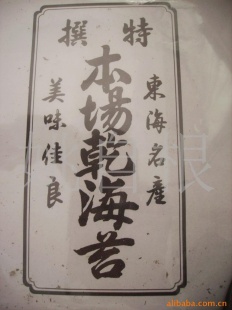 特撰
東海名産
本場乾海苔
美味佳良
alibaba.com.cn